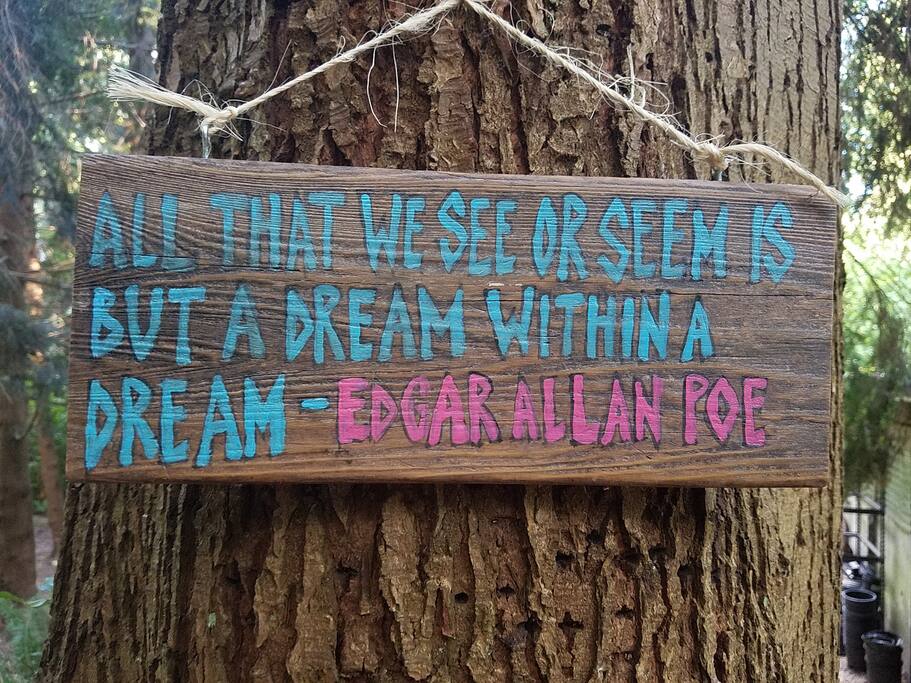 ALL THAT WE SEE OR SEEM IS
BUT A DREAM WITHIN A
DREAM - EDGAR ALLAN POE